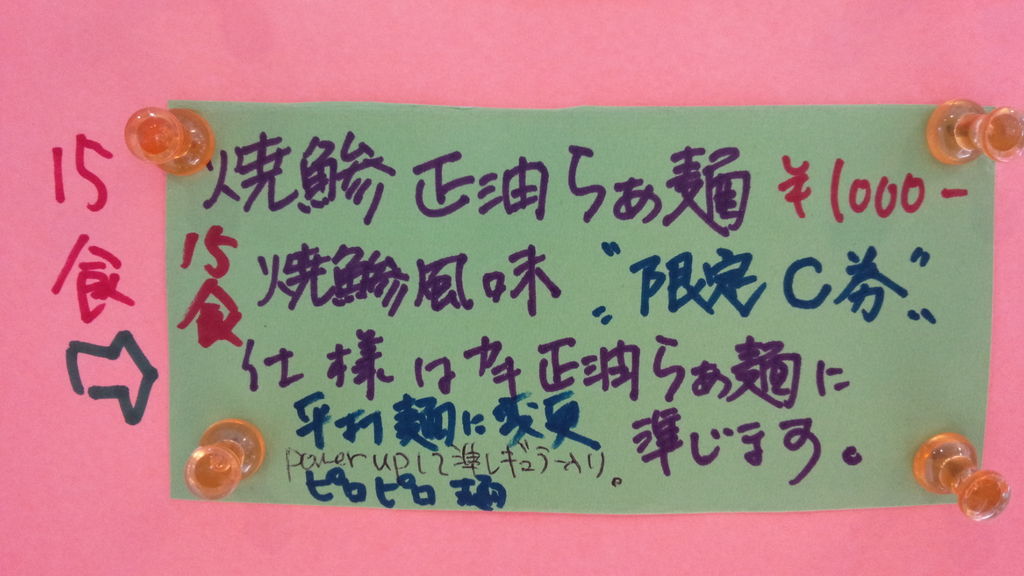 15
食
焼鯵正油らぁ麺 ¥1000-
15
食
焼鯵風味 "限定C券"
仕様はカキ正油らぁ麺に
平打麺に変更
準じます。
power upして準レギュラー入り。
ピロピロ麺